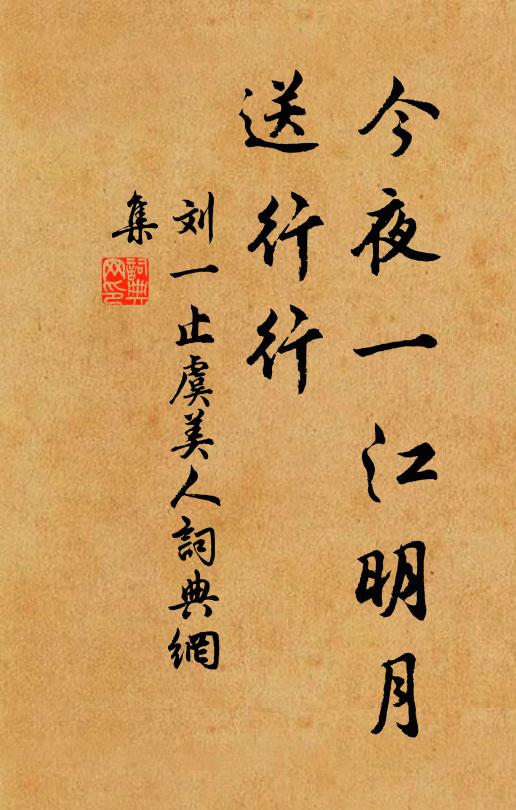 今夜一江明月
送行行
刘一止虞美人詞典網
集
詞典網印